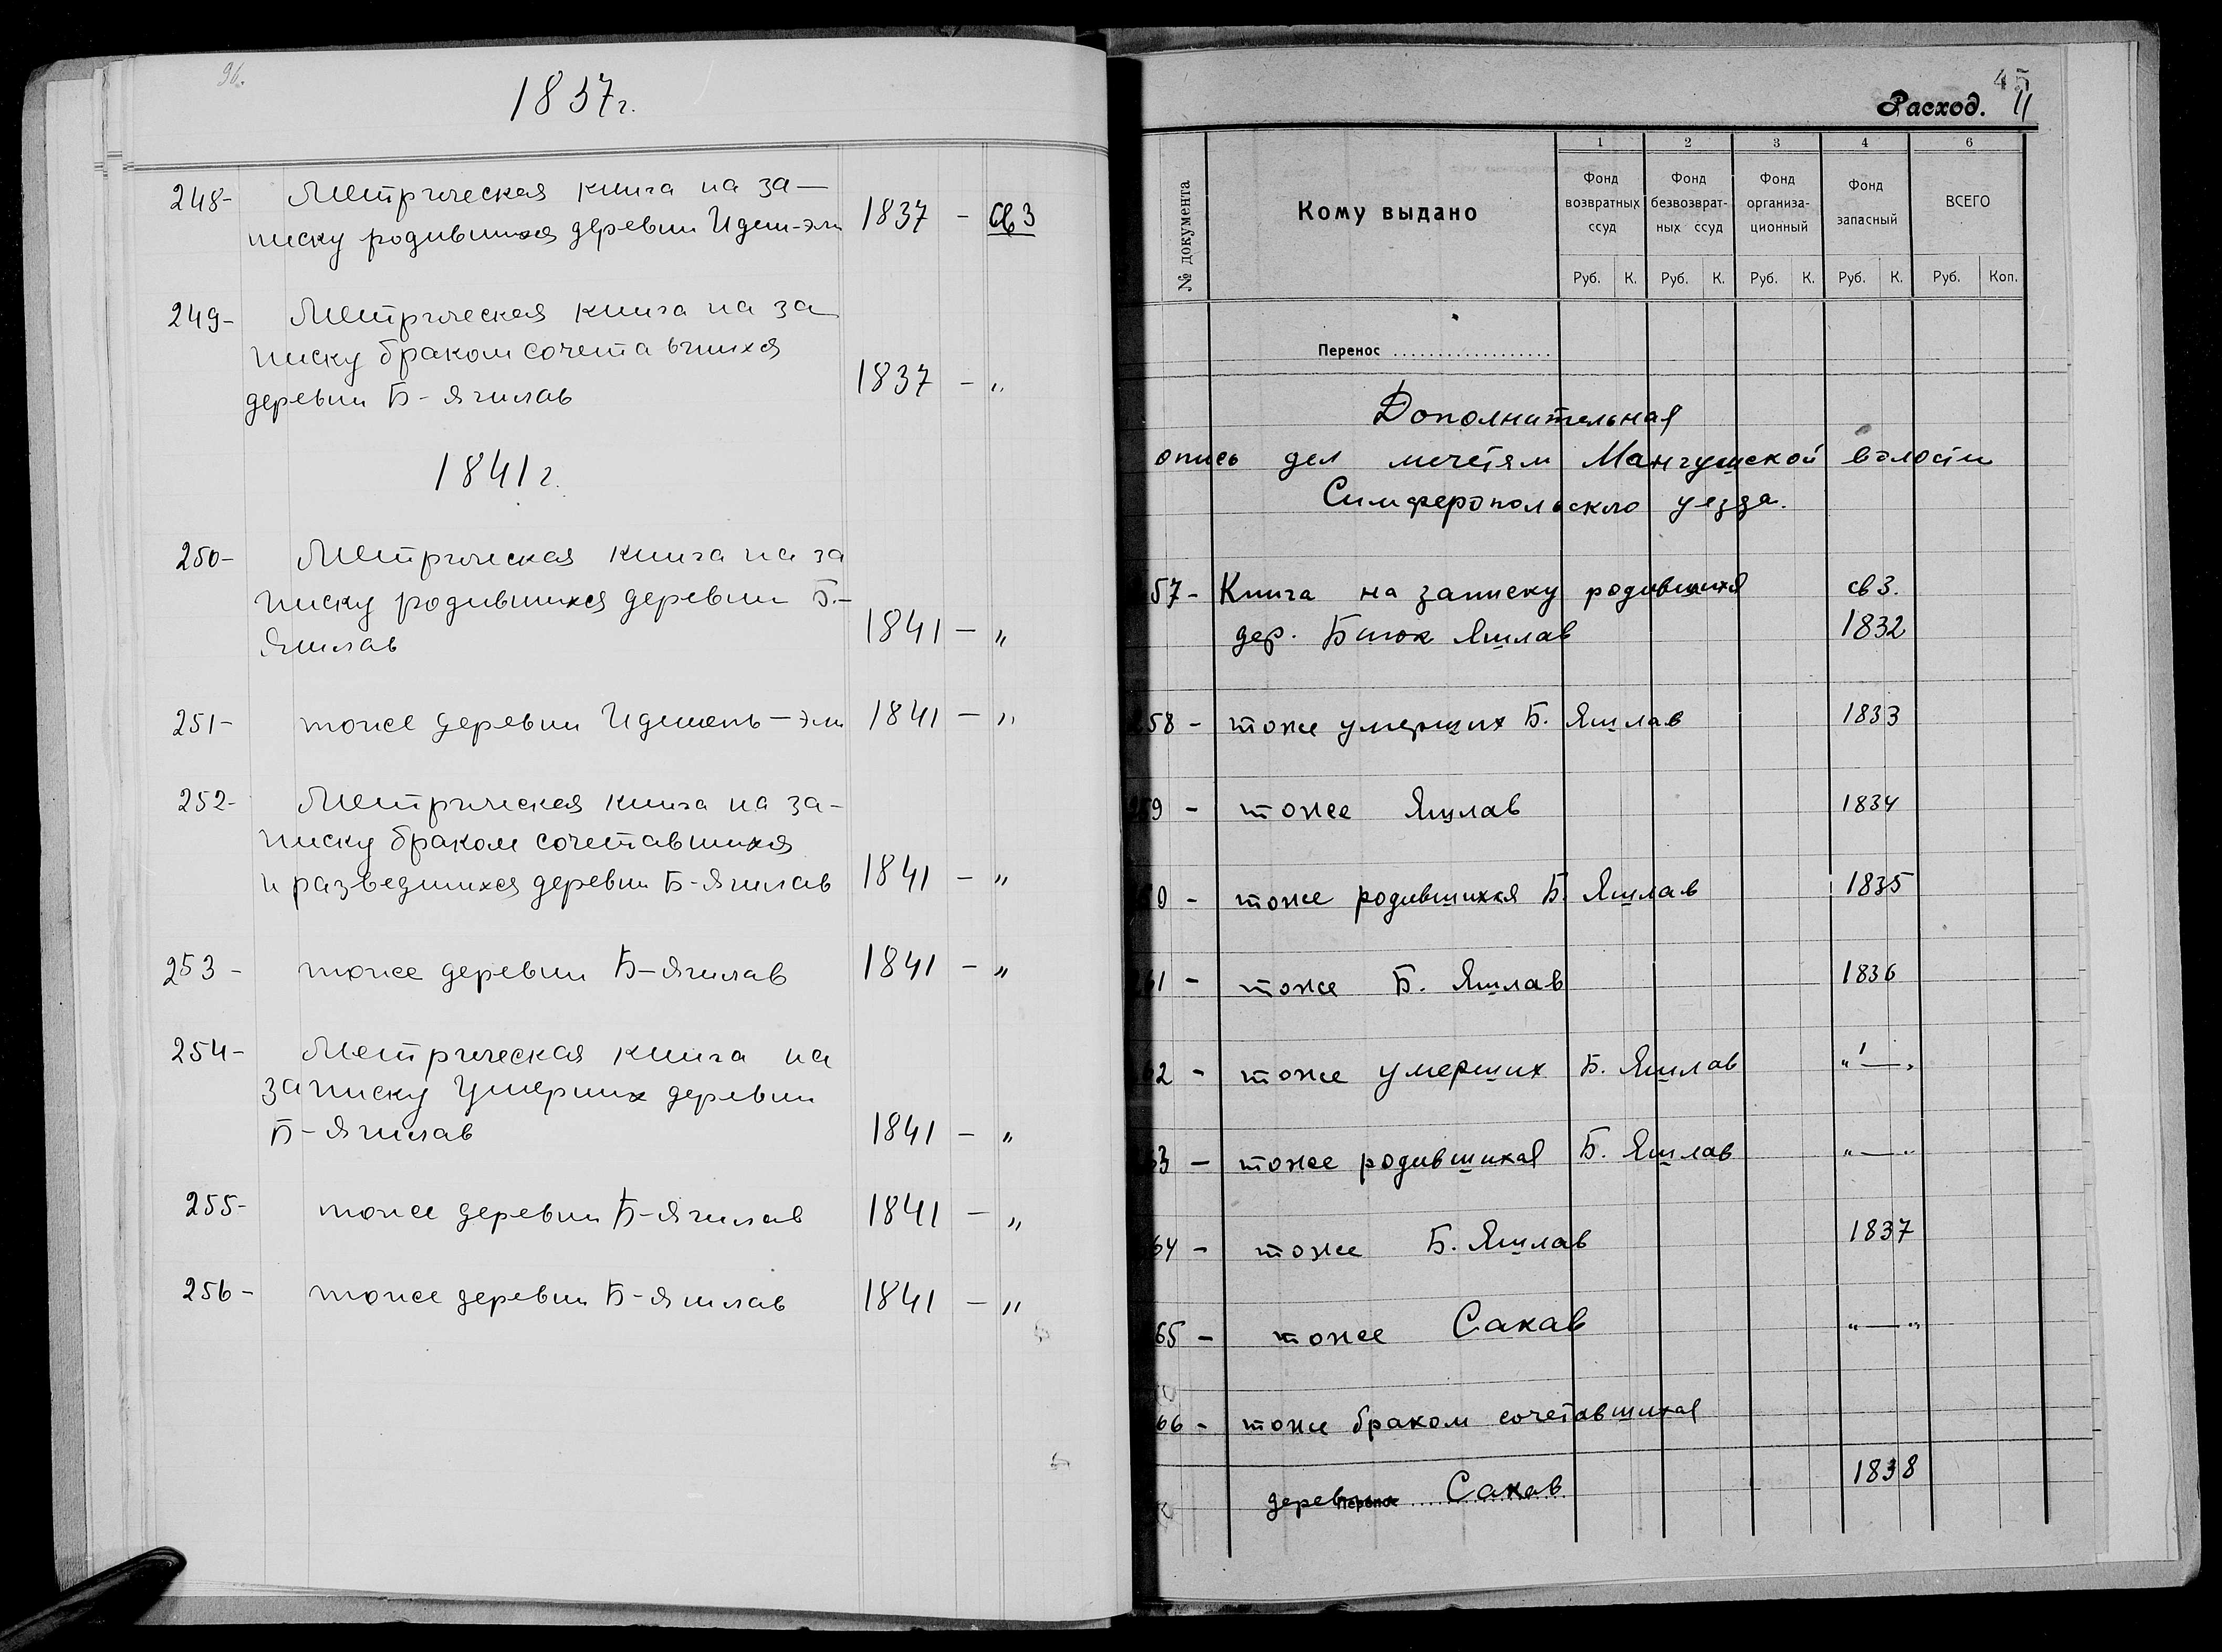 96.
1837г.
248- Метрическая книга на за-
писку родившихся деревни Идеш-эли 1837 - св 3
249- Метрическая книга на за
писку браком сочетавшихся
деревни Б-Яшлав 1837 - "
1841 г.
250- Метрическая книга на за
писку родившихся деревни Б.-
Яшлав 1841 - "
251- тоже деревни Идешень-эли 1841 - "
252- Метрическая книга на за-
писку браком сочетавшихся
и разведшихся деревни Б-Яшлав 1841 - "
253- тоже деревни Б-Яшлав 1841 - "
254- Метрическая книга на
записку умерших деревни
Б-Яшлав 1841 - "
255- тоже деревни Б-Яшлав 1841 - "
256- тоже деревни Б-Яшлав 1841 - "
45
Расход. 11
№ документа
Кому выдано
1 2 3 4 6
Фонд возвратных ссуд
Фонд безвозврат-ных ссуд
Фонд организа-ционный
Фонд запасный
ВСЕГО
Руб. К. Руб. К. Руб. К. Руб. К. Руб. Коп.
Перенос
Дополнительная
опись дел мечетям Мангушской волости
Симферопольского уезда.
57- Книга на записку родившихся св 3.
дер. Биюк Яшлав 1832
58- тоже умерших Б. Яшлав 1833
59- тоже Яшлав 1834
0- тоже родившихся Б. Яшлав 1835
61- тоже Б. Яшлав 1836
62- тоже умерших Б. Яшлав "—"
63- тоже родившихся Б. Яшлав "—"
64- тоже Б. Яшлав 1837
65- тоже Сакав "—"
66- тоже браком сочетавшихся
деревни Сакав 1838
Перенос